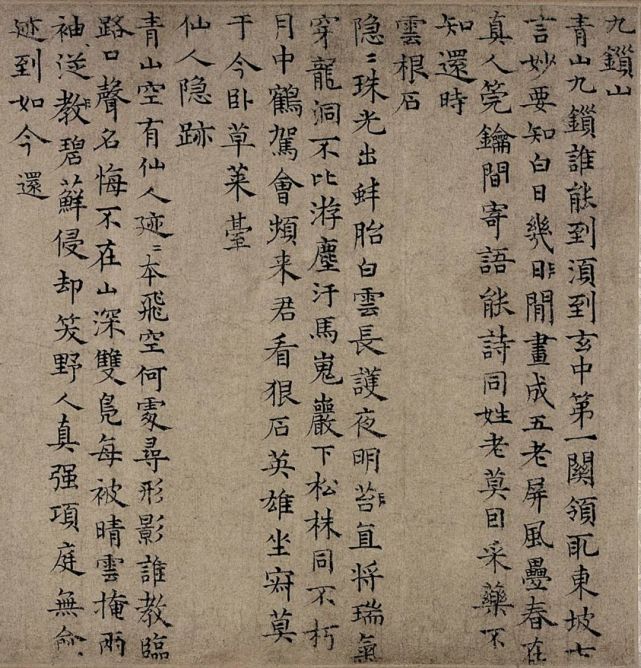 九鎖山
青山九鎖誰能到須到玄中第一關領取東坡七
言妙要知白日幾日閒畫成五老屏風疊春在
真人筦鑰間寄語能詩同姓老莫因采藥不
知還時
雲根石
隐〻珠光出蚌胎白雲長護夜明苔直将瑞氣
穿龍洞不比游塵汙馬嵬巖下松株同不朽
月中鶴駕會頻来君看狠石英雄坐寂莫
于今卧草萊臺
仙人隐跡
青山空有仙人迹〻本飛空何處尋形影誰教臨
路口聲名悔不在山深雙鳧每被晴雲掩兩
袖從教碧蘚侵却笑野人真强項庭無
迹到如今還